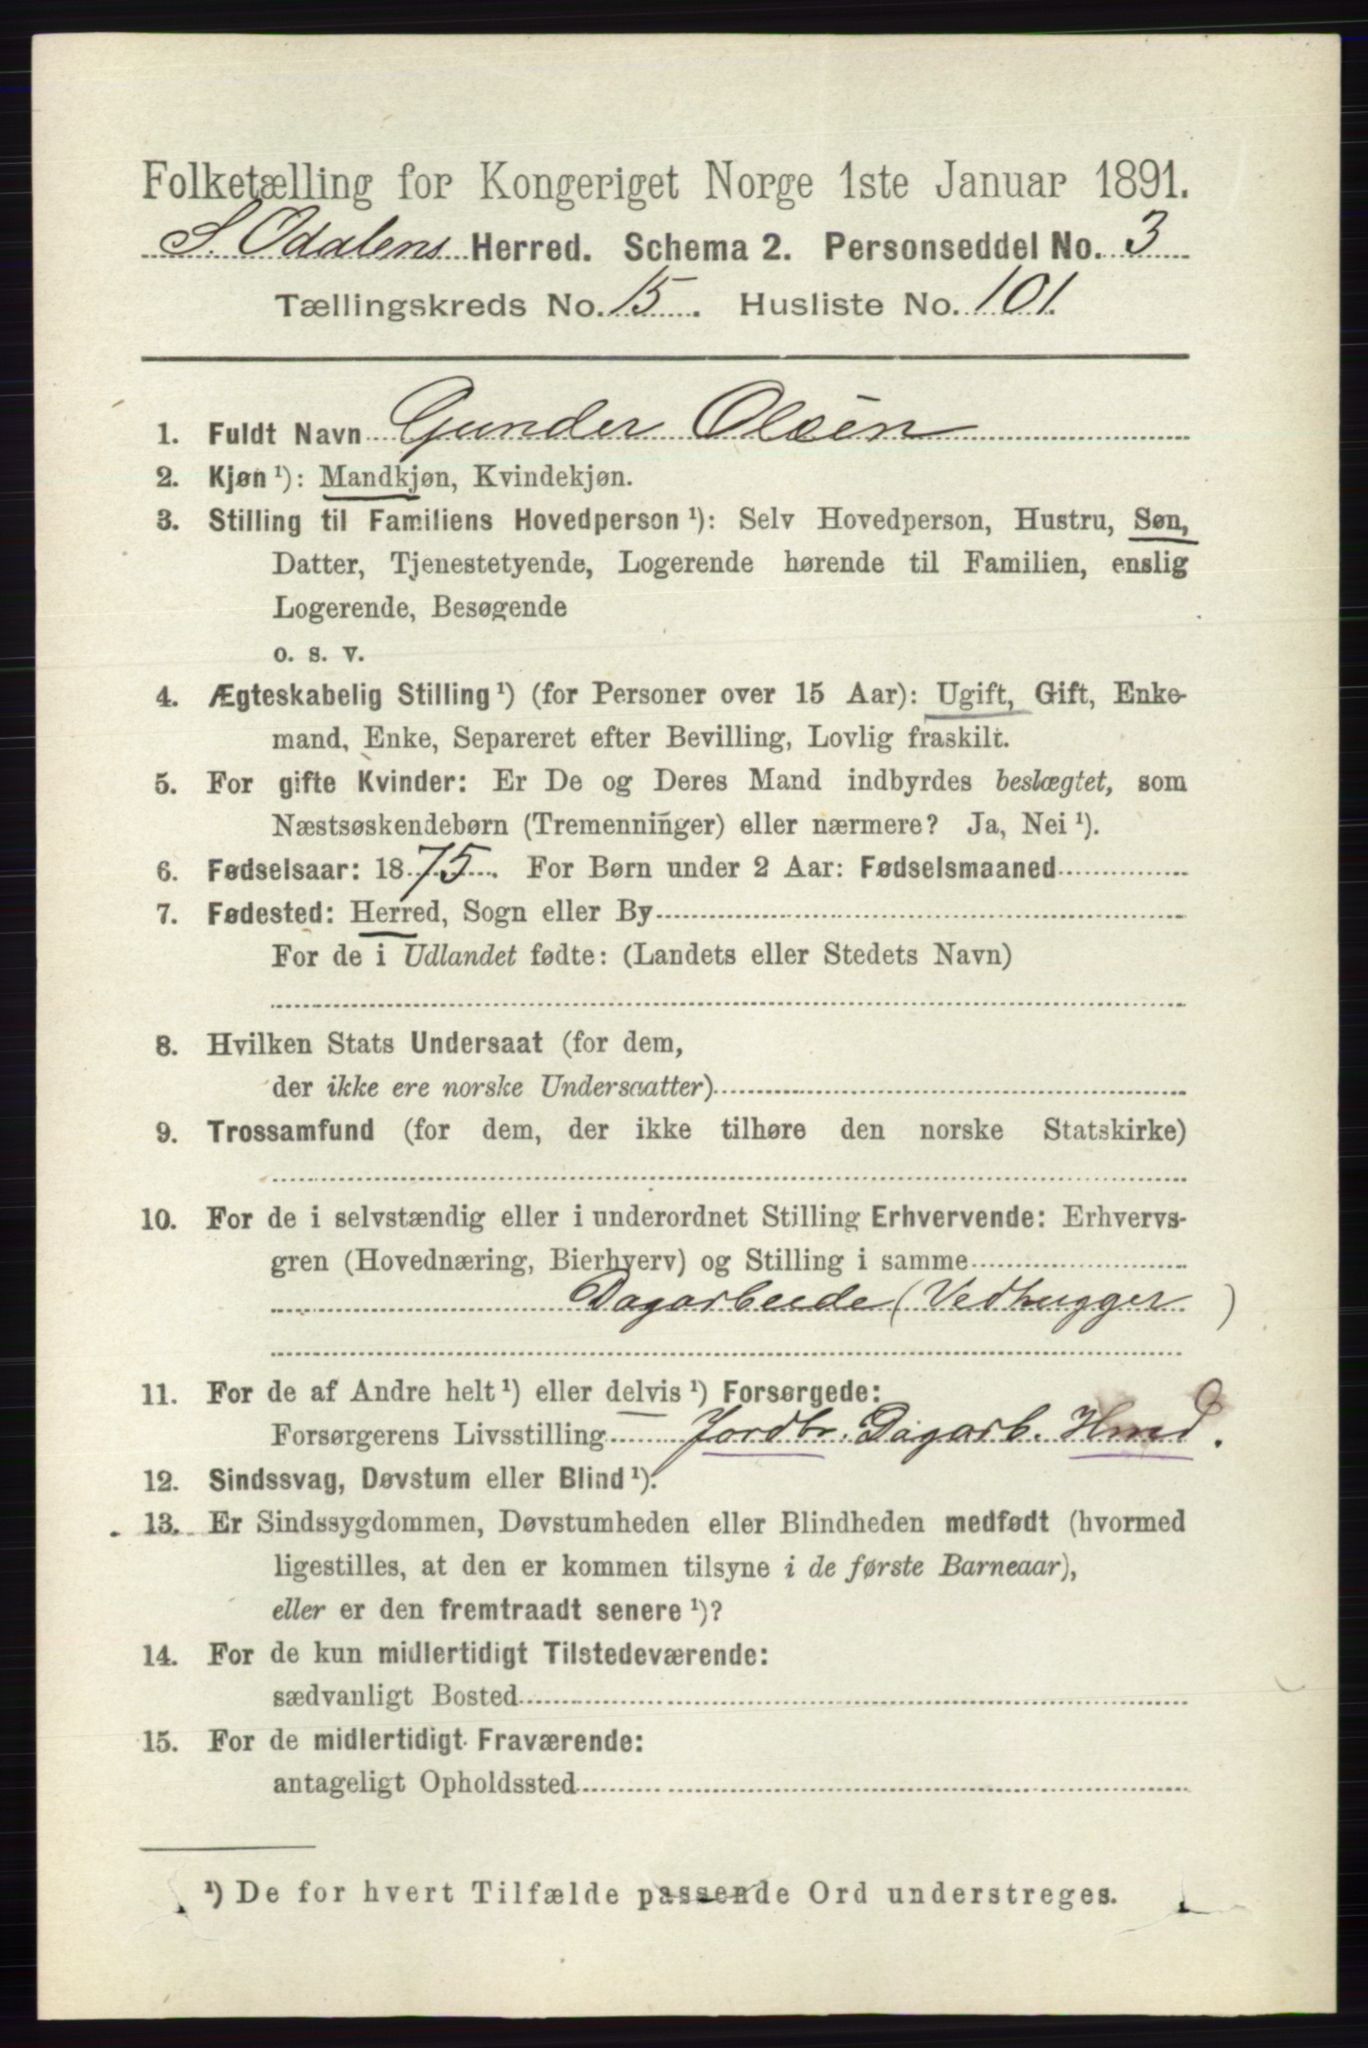 Folketælling for Kongeriget Norge 1ste Januar 1891.
S. Odalens Herred. Schema 2. Personseddel No. 3
Tællingskreds No. 15. Husliste No. 101.
1. Fuldt Navn Gunder Olsen
2. Kjøn¹): Mandkjøn, Kvindekjøn.
3. Stilling til Familiens Hovedperson¹): Selv Hovedperson, Hustru, Søn,
Datter, Tjenestetyende, Logerende hørende til Familien, enslig
Logerende, Besøgende
o. s. v.
4. Ægteskabelig Stilling¹) (for Personer over 15 Aar): Ugift, Gift, Enke-
mand, Enke, Separeret efter Bevilling, Lovlig fraskilt.
5. For gifte Kvinder: Er De og Deres Mand indbyrdes beslægtet, som
Næstsøskendebørn (Tremenninger) eller nærmere? Ja, Nei¹).
6. Fødselsaar: 1875. For Børn under 2 Aar: Fødselsmaaned
7. Fødested: Herred, Sogn eller By
For de i Udlandet fødte: (Landets eller Stedets Navn)
8. Hvilken Stats Undersaat (for dem,
der ikke ere norske Undersaatter)
9. Trossamfund (for dem, der ikke tilhøre den norske Statskirke)
10. For de i selvstændig eller i underordnet Stilling Erhvervende: Erhvervs-
gren (Hovednæring, Bierhverv) og Stilling i samme
Dagarbeide (Vedhugger)
11. For de af Andre helt¹) eller delvis¹) Forsørgede:
Forsørgerens Livsstilling Jordbr. Dagarb. Hmd.
12. Sindssvag, Døvstum eller Blind¹).
13. Er Sindssygdommen, Døvstumheden eller Blindheden medfødt (hvormed
ligestilles, at den er kommen tilsyne i de første Barneaar),
eller er den fremtraadt senere¹)?
14. For de kun midlertidigt Tilstedeværende:
sædvanligt Bosted
15. For de midlertidigt Fraværende:
antageligt Opholdssted
¹) De for hvert Tilfælde passende Ord understreges.